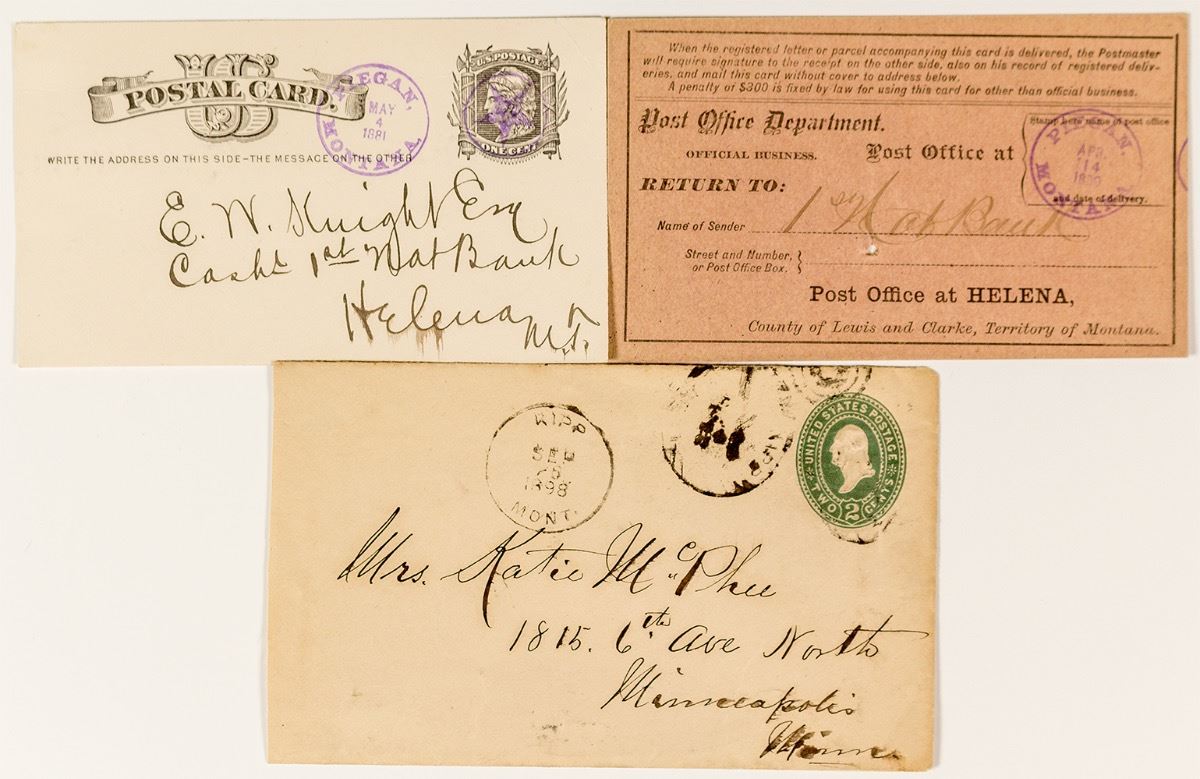 US
POSTAL CARD.
WRITE THE ADDRESS ON THIS SIDE-THE MESSAGE ON THE OTHER
MAY
4
1881
MONTANA
U.S. POSTAGE
ONE CENT
E. W. Knight Esq
Cash^r 1st Nat Bank
Helena
M.T.
When the registered letter or parcel accompanying this card is delivered, the Postmaster
will require signature to the receipt on the other side, also on his record of registered deliv-
eries, and mail this card without cover to address below.
A penalty of $300 is fixed by law for using this card for other than official business.
Post Office Department.
OFFICIAL BUSINESS.
Post Office at
Stamp here name of post office
and date of delivery.
APR
14
MONTANA
RETURN TO:
Name of Sender 1st Nat Bank
Street and Number,
or Post Office Box.
Post Office at HELENA,
County of Lewis and Clarke, Territory of Montana.
KIPP
SEP
1898
MONT.
UNITED STATES POSTAGE
TWO 2 CENTS
Mrs. Katie McPhee
1815. 6th Ave North
Minneapolis
Minn